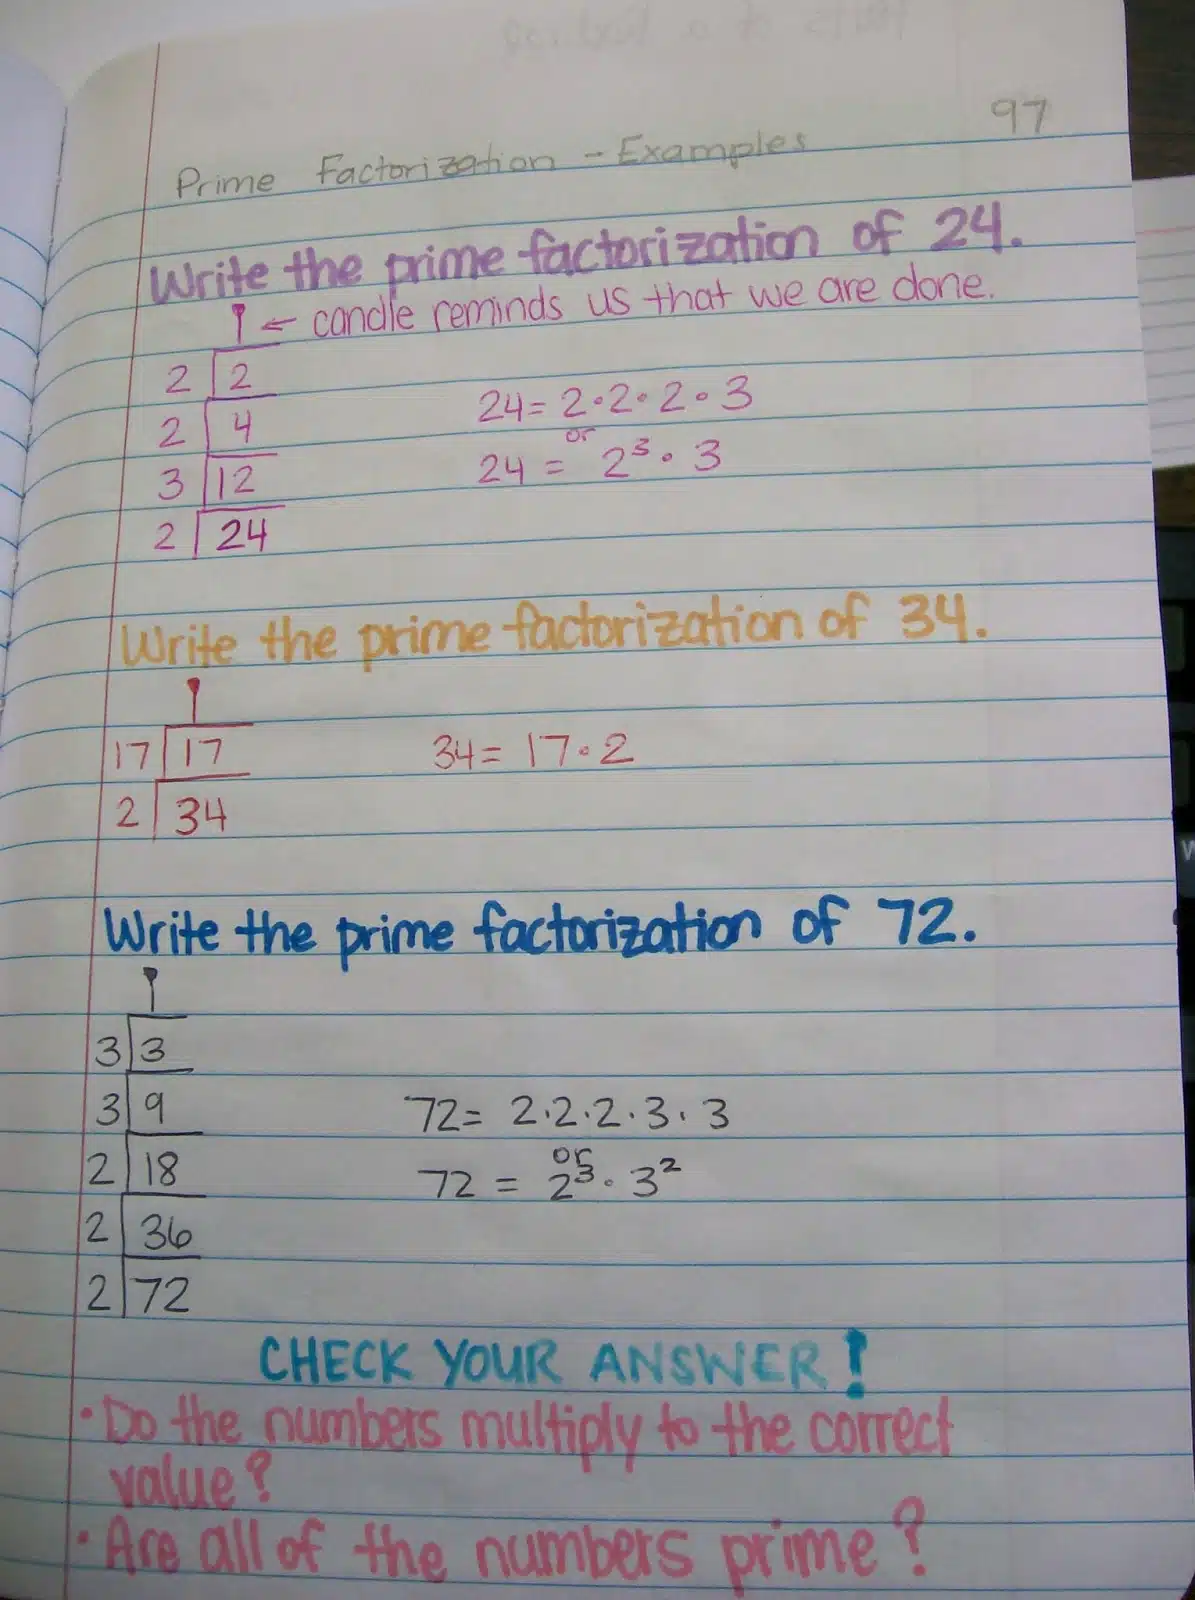 97
Prime Factorization - Examples
Write the prime factorization of 24.
← candle reminds us that we are done.
2 2
2 4
24 = 2·2·2·3
or
3 12
24 = 2³·3
2 24
Write the prime factorization of 34.
17 17
34 = 17·2
2 34
Write the prime factorization of 72.
3 3
3 9
72 = 2·2·2·3·3
or
2 18
72 = 2³·3²
2 36
2 72
CHECK YOUR ANSWER!
• Do the numbers multiply to the correct
value?
• Are all of the numbers prime?